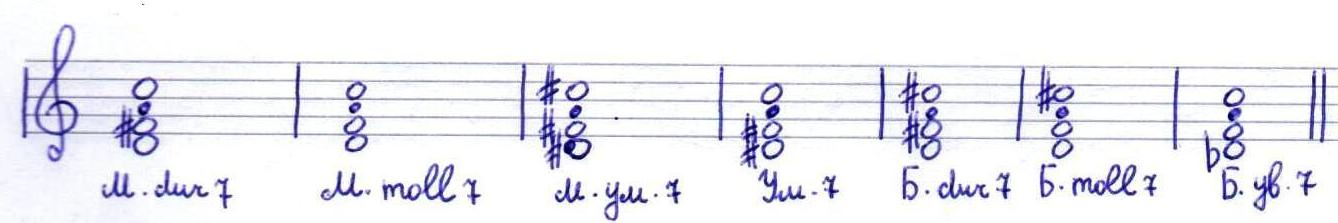 М. dur 7 М. moll 7 М. ум. 7 Ум. 7 Б. dur 7 Б. moll 7 Б. ув. 7